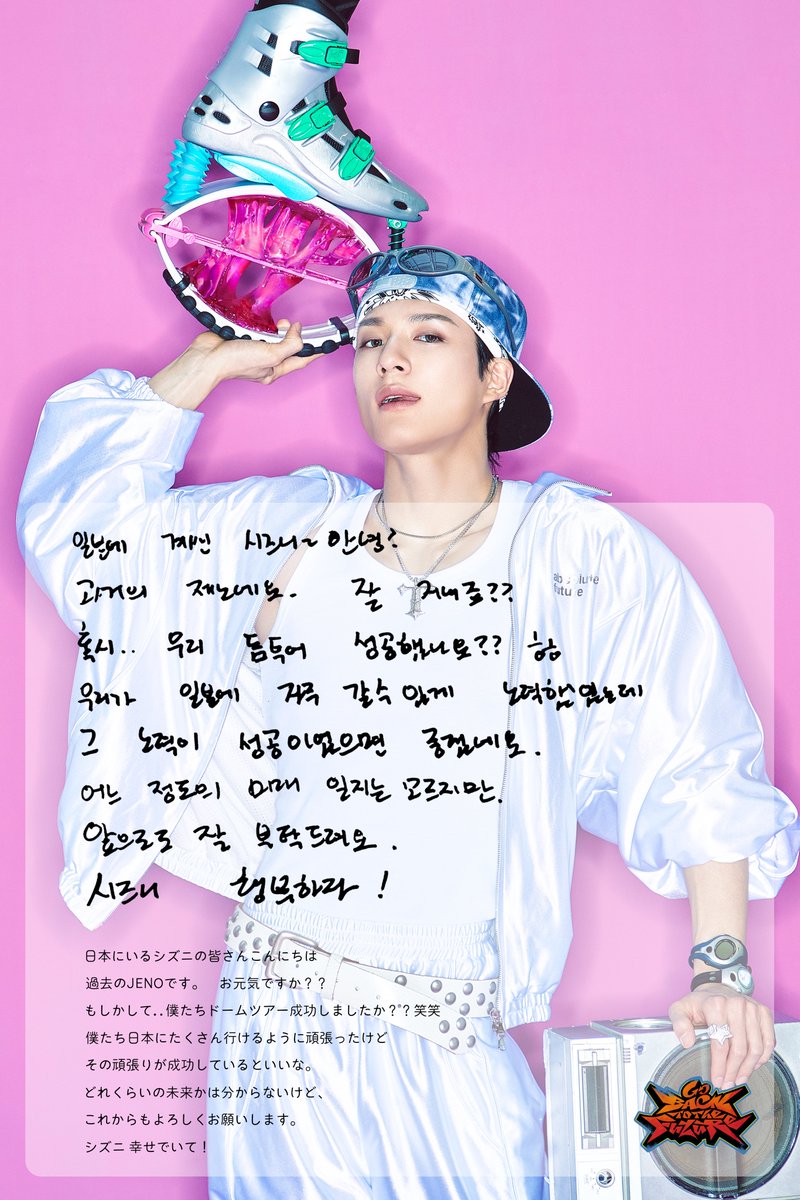 일본에 계신 시즈니~ 안녕?
과거의 제노네요. 잘 지내죠??
혹시.. 우리 돔투어 성공했나요?? ㅎㅎ
우리가 일본에 자주 갈수 있게 노력했었는데
그 노력이 성공이었으면 좋겠네요.
어느 정도의 미래 일지는 모르지만,
앞으로도 잘 부탁드려요.
시즈니 행복하자!
absolute
future
日本にいるシズニの皆さんこんにちは
過去のJENOです。 お元気ですか??
もしかして..僕たちドームツアー成功しましたか??笑笑
僕たち日本にたくさん行けるように頑張ったけど
その頑張りが成功しているといいな。
どれくらいの未来かは分からないけど、
これからもよろしくお願いします。
シズニ 幸せでいて!
GO
BACK
TO THE
FUTURE